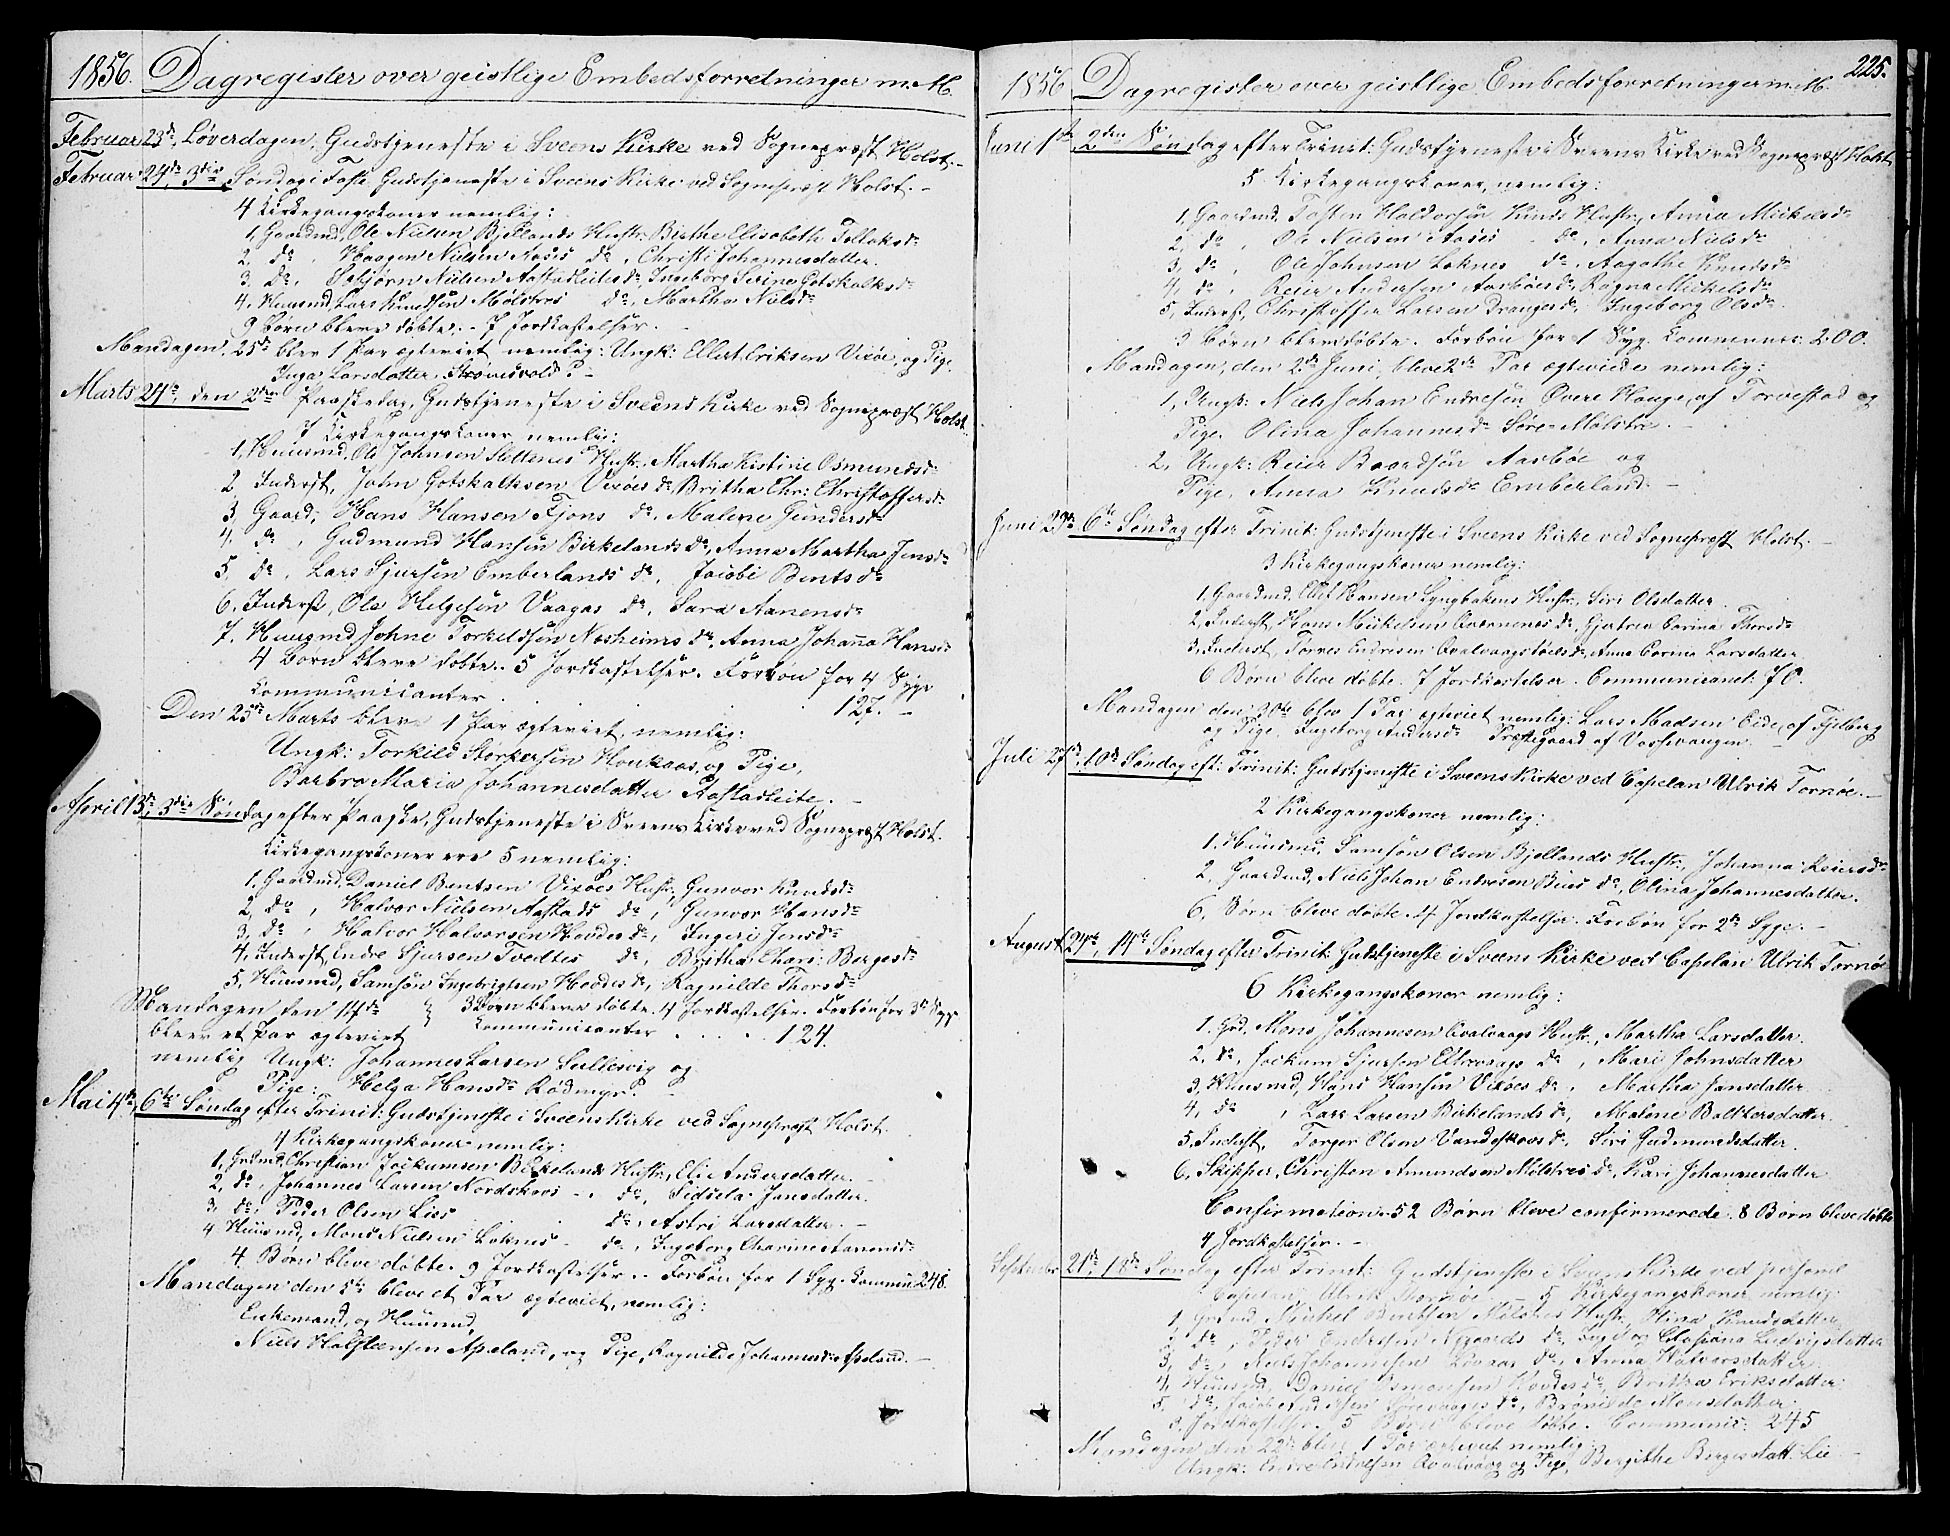 1856. Dagregister over geistlige Embedsforretninger m.M.
Februar 23de, Løverdagen, Gudstjeneste i Sveens Kirke ved Sognepræst Holst.-
Februar 24de, 3die Søndag i Faste Gudstjeneste i Sveens Kirke ved Sognepræst Holst.-
4 Kirkegangskoner nemlig:
1, Gaardmd, Ole Nielsen Bjellands Hustr: Birthe Elisabeth Tollaksdr
2, do, Haagen Nielsen Aases do, Christi Johannesdatter.
3, do, Asbjørn Nielsen Aastadleites do, Ingeborg Serine Gotskalksdr
4, Huusmd, Lars Knudsen Mølstres do, Martha Nielsdr
9 Børn bleve døbte. - 7 Jordkastelser.
Mandagen, 25de blev 1 Par ægteviet nemlig: Ungk: Ellert Eriksen Vixøe, og Pige,
Inga Larsdatter
Marts 24de, den 2den Paaskedag, Gudstjeneste i Sveens Kirke ved Sognepræst Holst.
7 Kirkegangskoner nemlig:
1, Huusmd, Ole Johnsen Slettenes Hustr. Martha Kistine Osmundsdr
2, Inderst, John Gotskalksen Vixøes do Britha Chr: Christoffersdr
3, Gaard, Hans Hansen Fjons do, Malene Gundersdr
4, do, Gudmund Hansen Birkelands do, Anna Martha Jensdr
5, do, Lars Sjursen Emberlands do, Jacobi Bentsdr
6, Inderst, Ole Helgesen Vaagas do, Sara Aanensdr
7, Huusmd Johne Torkeldsen Nesheims do, Anna Johanna Hansdr
4 Børn bleve døbte. 5 Jordkastelser. Forbøn for 4 Syge
Communicanter . . . 127. -
Den 25de Marts blev 1 Par ægteviet, nemlig:
Ungk: Torkild Storkersen Houkaas, og Pige,
Barbro Maria Johannesdatter Aastadleite. -
April 13de, 3die Søndag efter Paaske, Gudstjeneste i Sveens Kirke ved Sognepræst Holst.
Kirkegangskoner ere 5 nemlig:
1, Gaardmd, Daniel Bentsen Vixøes Hustr, Gunvor Knudsdr
2, do, Halvor Nielsen Aastads do, Gunvor Hansdr
3, do, Halvor Halvorsen Hovdes do, Ingeri Jensdr
4, Inderst, Endre Sjursen Tveites do, Britha Chari: Børgesdr
5, Huusmd, Samson Ingebrigtsen Hovdes do, Ragnilde Thorsdr
Mandagen den 14de } 3 Børn bleve døbte. 4 Jordkastelser. Forbøn for 3de Syge
blev et Par ægteviet Communicanter . . . . 124.
nemlig Ungk: Johannes Larsen Sallesvig og
Pige: Helga Hansdr Rødmyr. -
Mai 4de, 6te Søndag efter Trinit: Gudstjeneste i Sveens Kirke ved Sognepræst Holst.
4 Kirkegangskoner nemlig:
1, Grdmd, Christian Jockumsen Bækelands Hustr, Eli Andersdatter. -
2, do, Johannes Larsen Nordskovs - do, Sidsela Jansdatter.
3, do, Peder Olsen Lies do, Astri Larsdatter. -
4 Huusmd, Mons Nielsen Loknes - do, Ingeborg Charine Aanensdr
4 Børn bleve døbte. 9 Jordkastelser. Forbøn for 1 Syg. Commun: 248.
Mandagen den 5te bleve et Par ægteviet, nemlig:
Enkemand, og Huusmd,
Niels Halsteensen Apeland, og Pige, Ragnilde Johannesdr Apeland. -
225.
1856 Dagregister over geistlige Embedsforretninger m.M.
Juni 1ste, 2den Søndag efter Trinit: Gudstjeneste i Sveens Kirke ved Sognepræst Holst
5 Kirkegangskoner, nemlig:
1, Gaardmd. Tosten Haldorsen Hinds Hustr, Anna Mickelsdr
2, do, Ole Nielsen Aases - do, Anna Nielsdr
3, do, Ole Johnsen Loknes do, Aagothe Knudsdr
4, do, Reier Andersen Aarbøes do, Ragna Mickelsdr
5, Inderst, Christoffer Larsen Dranges do, Ingeborg Olsdr.
3 Børn bleve døbte. Forbøn for 1 Syg. Communic: 200.
Mandagen, den 2de Juni, bleve 2de Par ægteviede nemlig:
1, Ungk: Niels Johan Endresen Øvere Hauge, af Torvestad og
Pige, Olina Johannesdr Søre-Mølstre. -
2, Ungk: Reier Baardsen Aarbøe og
Pige, Anna Knudsdr Emberland. -
Juni 29de 6te Søndag efter Trinit: Gudstjeneste i Sveens Kirke ved Sognepræst Holst. -
3 Kirkegangskoner nemlig:
1, Gaardmd. Ellef Hansen Lyngbakens Hustr, Siri Olsdatter.
2, Inderst, Hans Mickelsen Qvernenes do, Gjertrea Carina Thorsdr
3, Inderst, Tørres Endresen Qvalvaagstøels do, Anna Carina Larsdatter
6 Børn bleve døbte. 7 Jordkastelser. Communicant: 70.
Mandagen den 30te blev 1 Par ægteviet nemlig: Lars Madsen Eide, af Fjelberg
og Pige, Ingeborg Andersdr Præstegaard af Vossevangen.
Juli 27de, 10de Søndag eft: Trinit: Gudstjeneste i Sveens Kirke ved Capelan Ulrik Tornøe. -
2 Kirkegangskoner nemlig:
1, Huusmd, Samson Olsen Bjellands Hustr, Johanna Reiersdr
2, Gaardmd, Niels Johan Endresen Bues do, Olina Johannesdatter.
6, Børn bleve døbte. 4 Jordkastelser. Forbøn for 2de Syge. -
August 24de, 14de Søndag efter Trinit: Gudstjeneste i Sveens Kirke ved Capelan Ulrik Tornøe
6 Kirkegangskoner nemlig:
1, Grd. Mons Johannesen Qvalvaags Hustr, Martha Larsdatter.
2, do, Jockum Sjursen Eltravaags do, Mari Johnsdatter
3, Huusmd, Hans Hansen Vixøes do, Martha Jansdatter
4, do, Lars Larsen Birkelands do, Malene Balthersdatter.
5, Inderst, Torger Olsen Vandeskovs do, Siri Gudmundsdatter.
6, Skipper, Christen Amundsen Mølstres do, Kari Johannesdatter
Confirmation. 52 Børn bleve confirmerede. 8 Børn bleve døbte
4 Jordkastelser. -
September 21de, 18de Søndag efter Trinit: Gudstjeneste i Sveens Kirke ved personel
Capelan, Ulrik Tornøe. 5 Kirkegangskoner nemlig:
1, Grdmd Michel Bentsen Mølstres Hustr, Olina Knudsdatter
2, do, Peder Endresen Nygaards do, Inger Ludvigsdatter
3, do, Niels Johannesen do, Anna Halvorsdatter
4, Huusmd, Daniel Osmonsen Hovdes do, Britha Eriksdatter
5, do, Jacob do, Monsdatter.
3, Jordkastelser. 5 Børn bleve døbte. Communic: 245
Mandagen den 22de blev 1 Par ægteviet nemlig:
Ungk: Endre Endresen Qvalvaag og Pige, Bergithe Børgesdatt. Lie